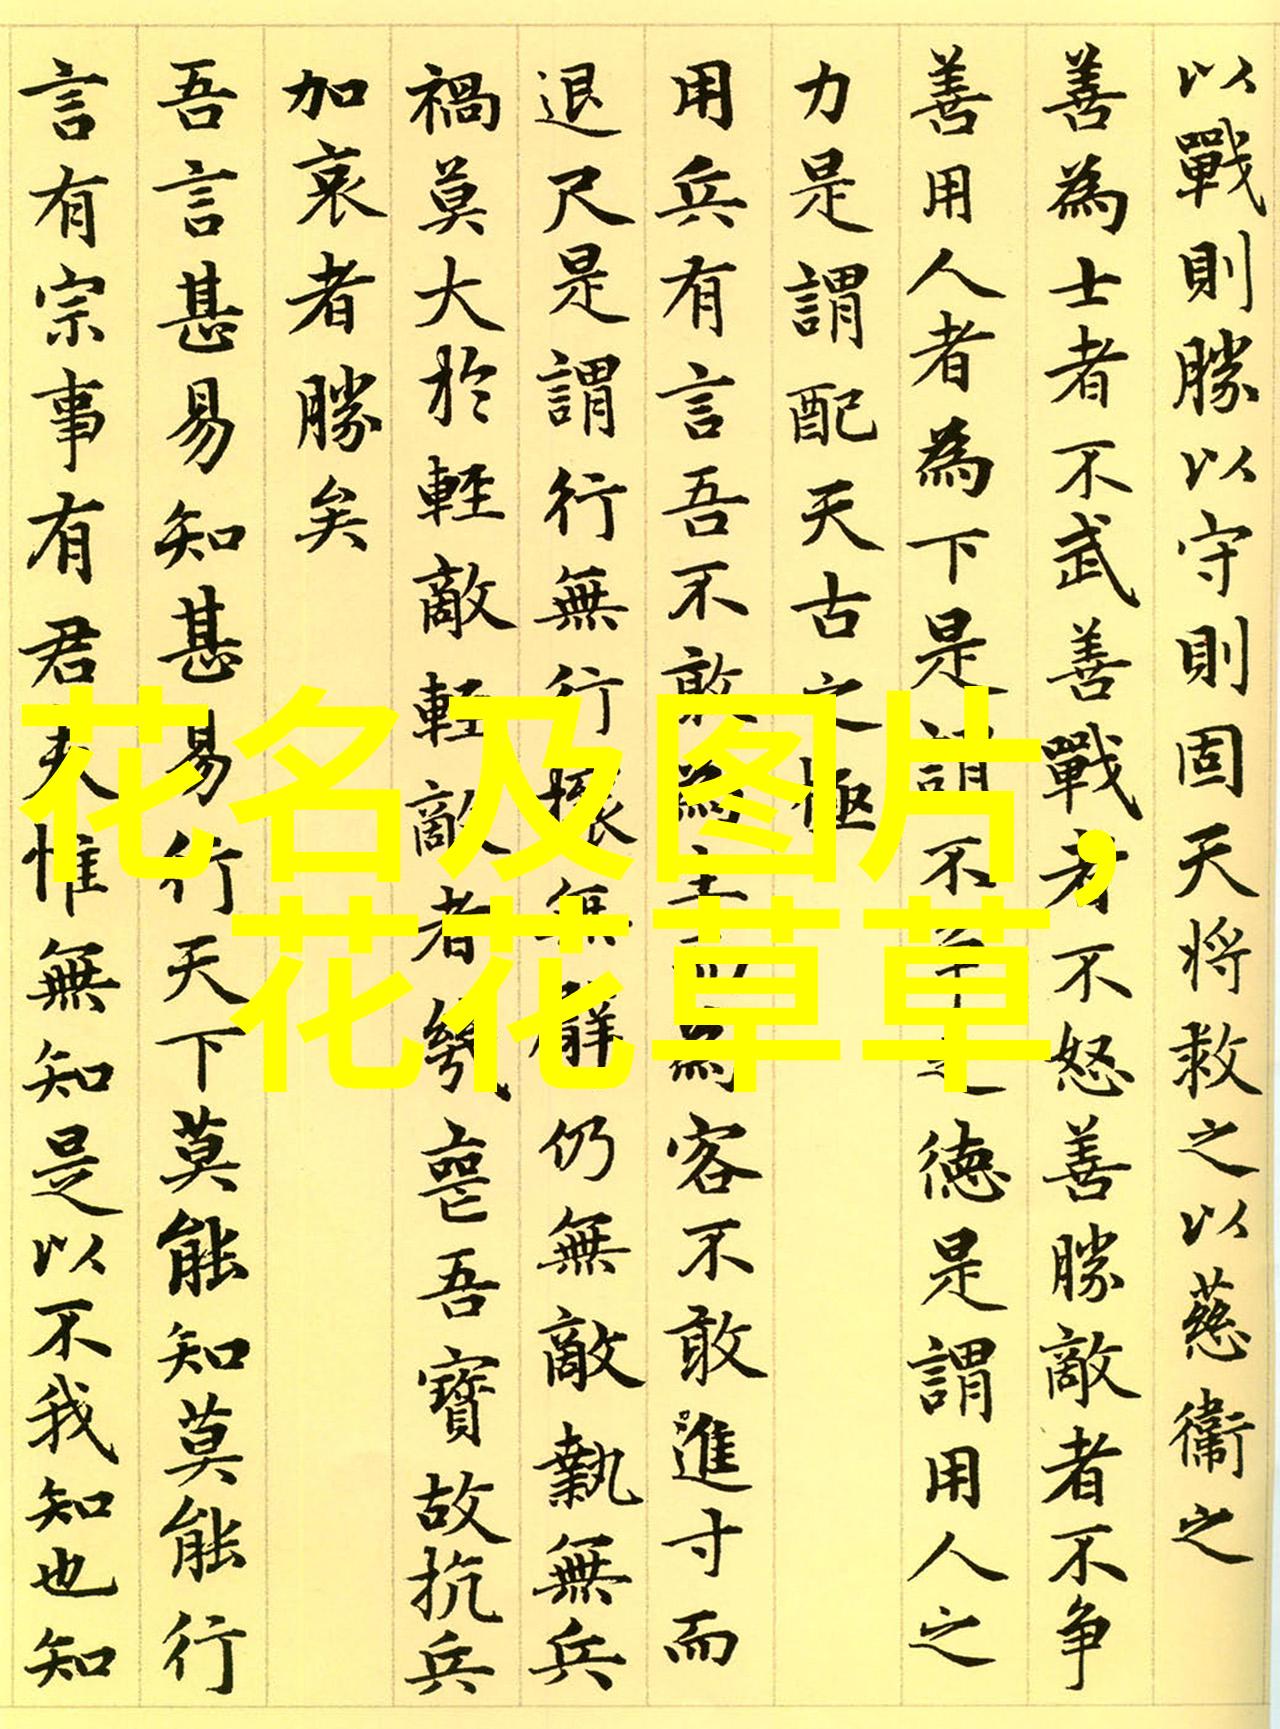 以戰則勝以守則固天将救之以慈衛之
善為士者不武善戰者不怒善勝敵者不争
善用人者為下是謂不争之德是謂用人之
力是謂配天古之極
用兵有言吾不敢為主而為客不敢進寸而
退尺是謂行無行攘無臂仍無敵執無兵
禍莫大於輕敵輕敵者幾喪吾寶故抗兵
加哀者勝矣
吾言甚易知甚易行天下莫能知莫能行
言有宗事有君夫惟無知是以不我知也知
花名及图片,
花花草草